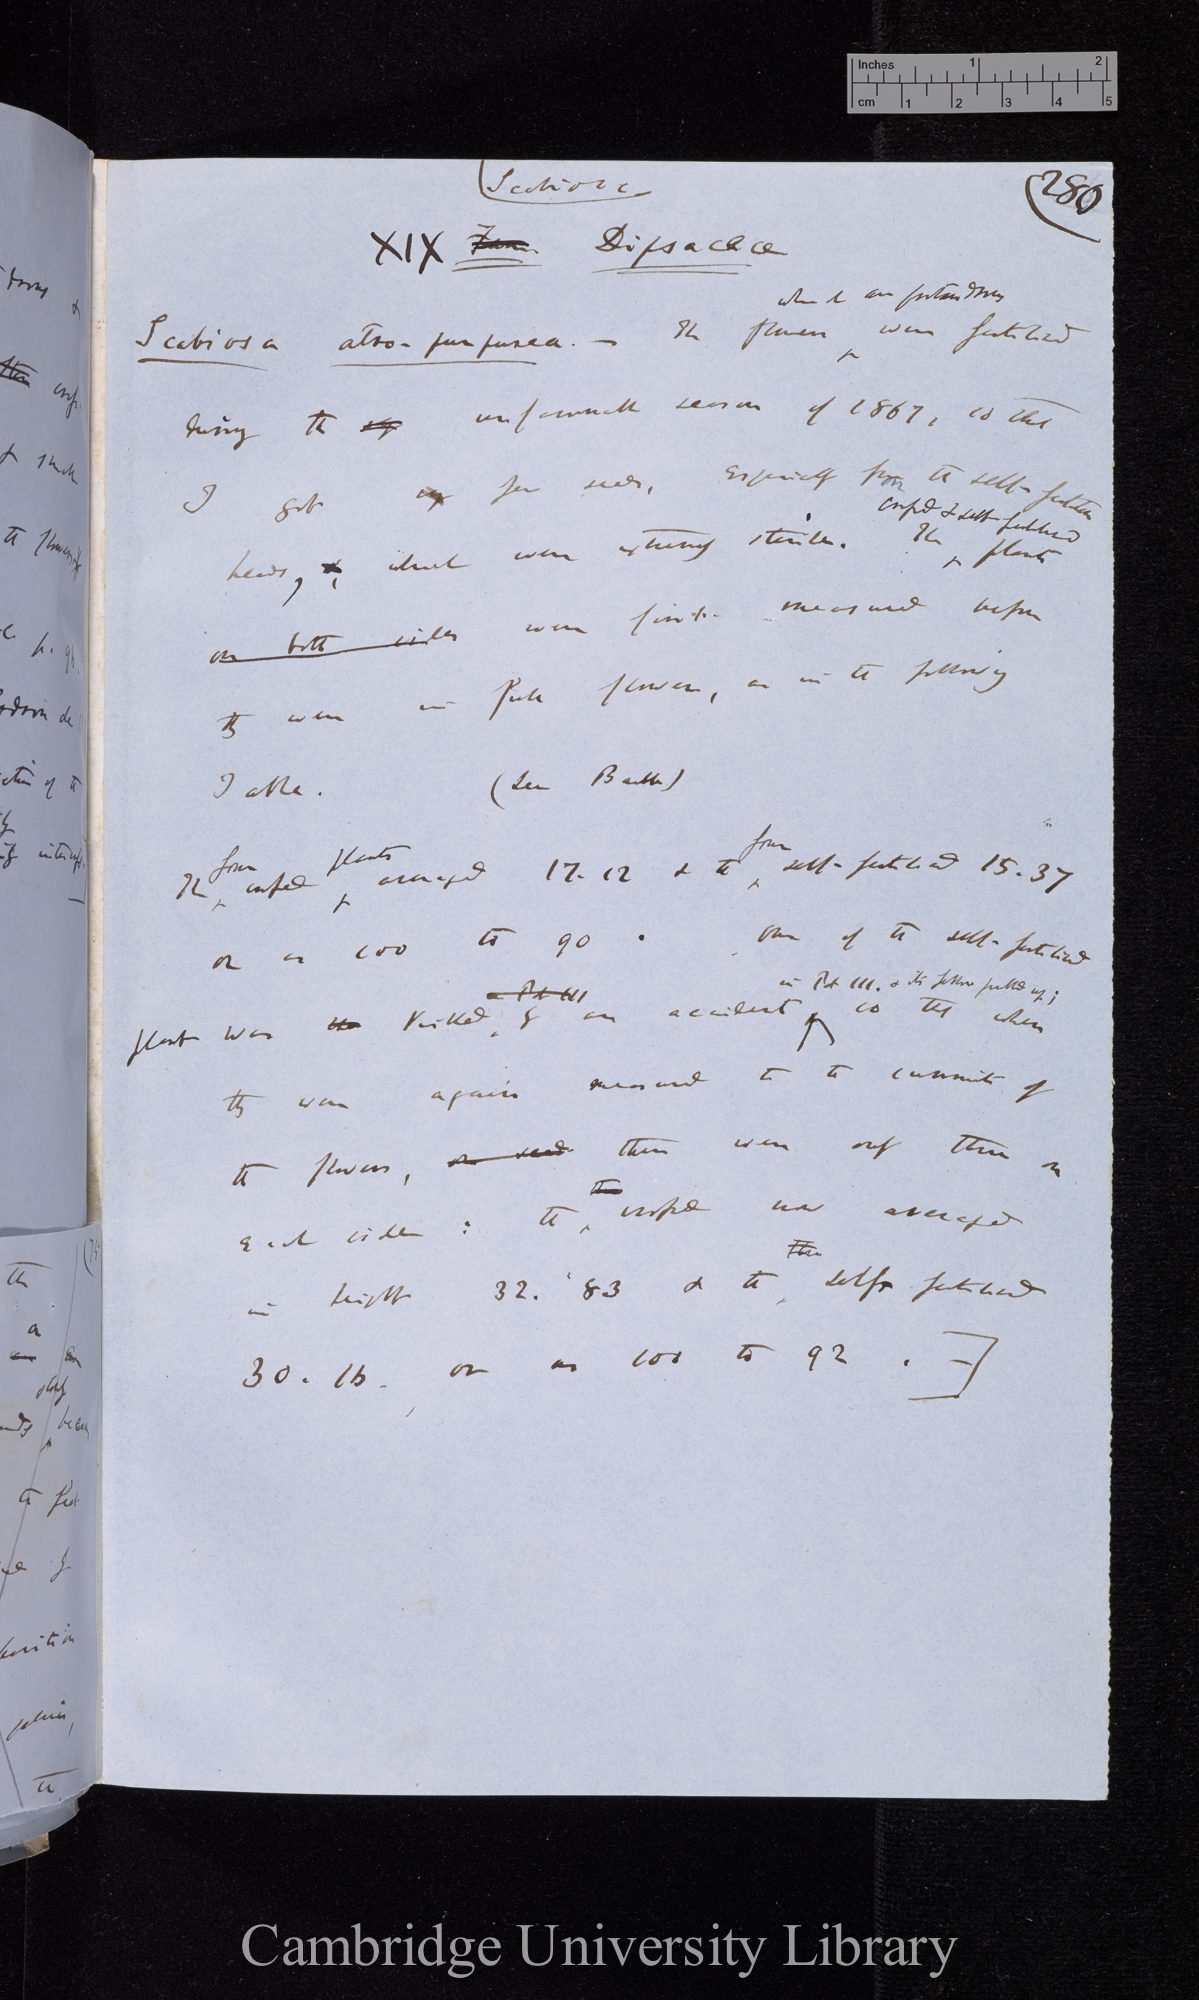 Inches 1 2
cm 1 2 3 4 5
Scabiosa
280
XIX Dipsaceæ
which are protandrous
Scabiosa atro-purpurea. — The flowers were fertilised
during the unfavourable season of 1867, so that
I got few seeds, especially from the self-fertilised
crossed & self-fertilised
heads, which were extremely sterile. The plants
on both sides were first measured before
they were in full flower, as in the following
Table. (See Back)
four plants four
The crossed averaged 17.12 & the self-fertilised 15.37
or as 100 to 90. One of the self-fertilised
in Pot III. & its fellow pulled up;
Pot III
plants was killed by an accident so that when
they were again measured to the summits of
the flowers, there were only three on
each side: the crossed now averaged
in height 32.83 & the self-fertilised
30.16 or as 100 to 92.]
Cambridge University Library